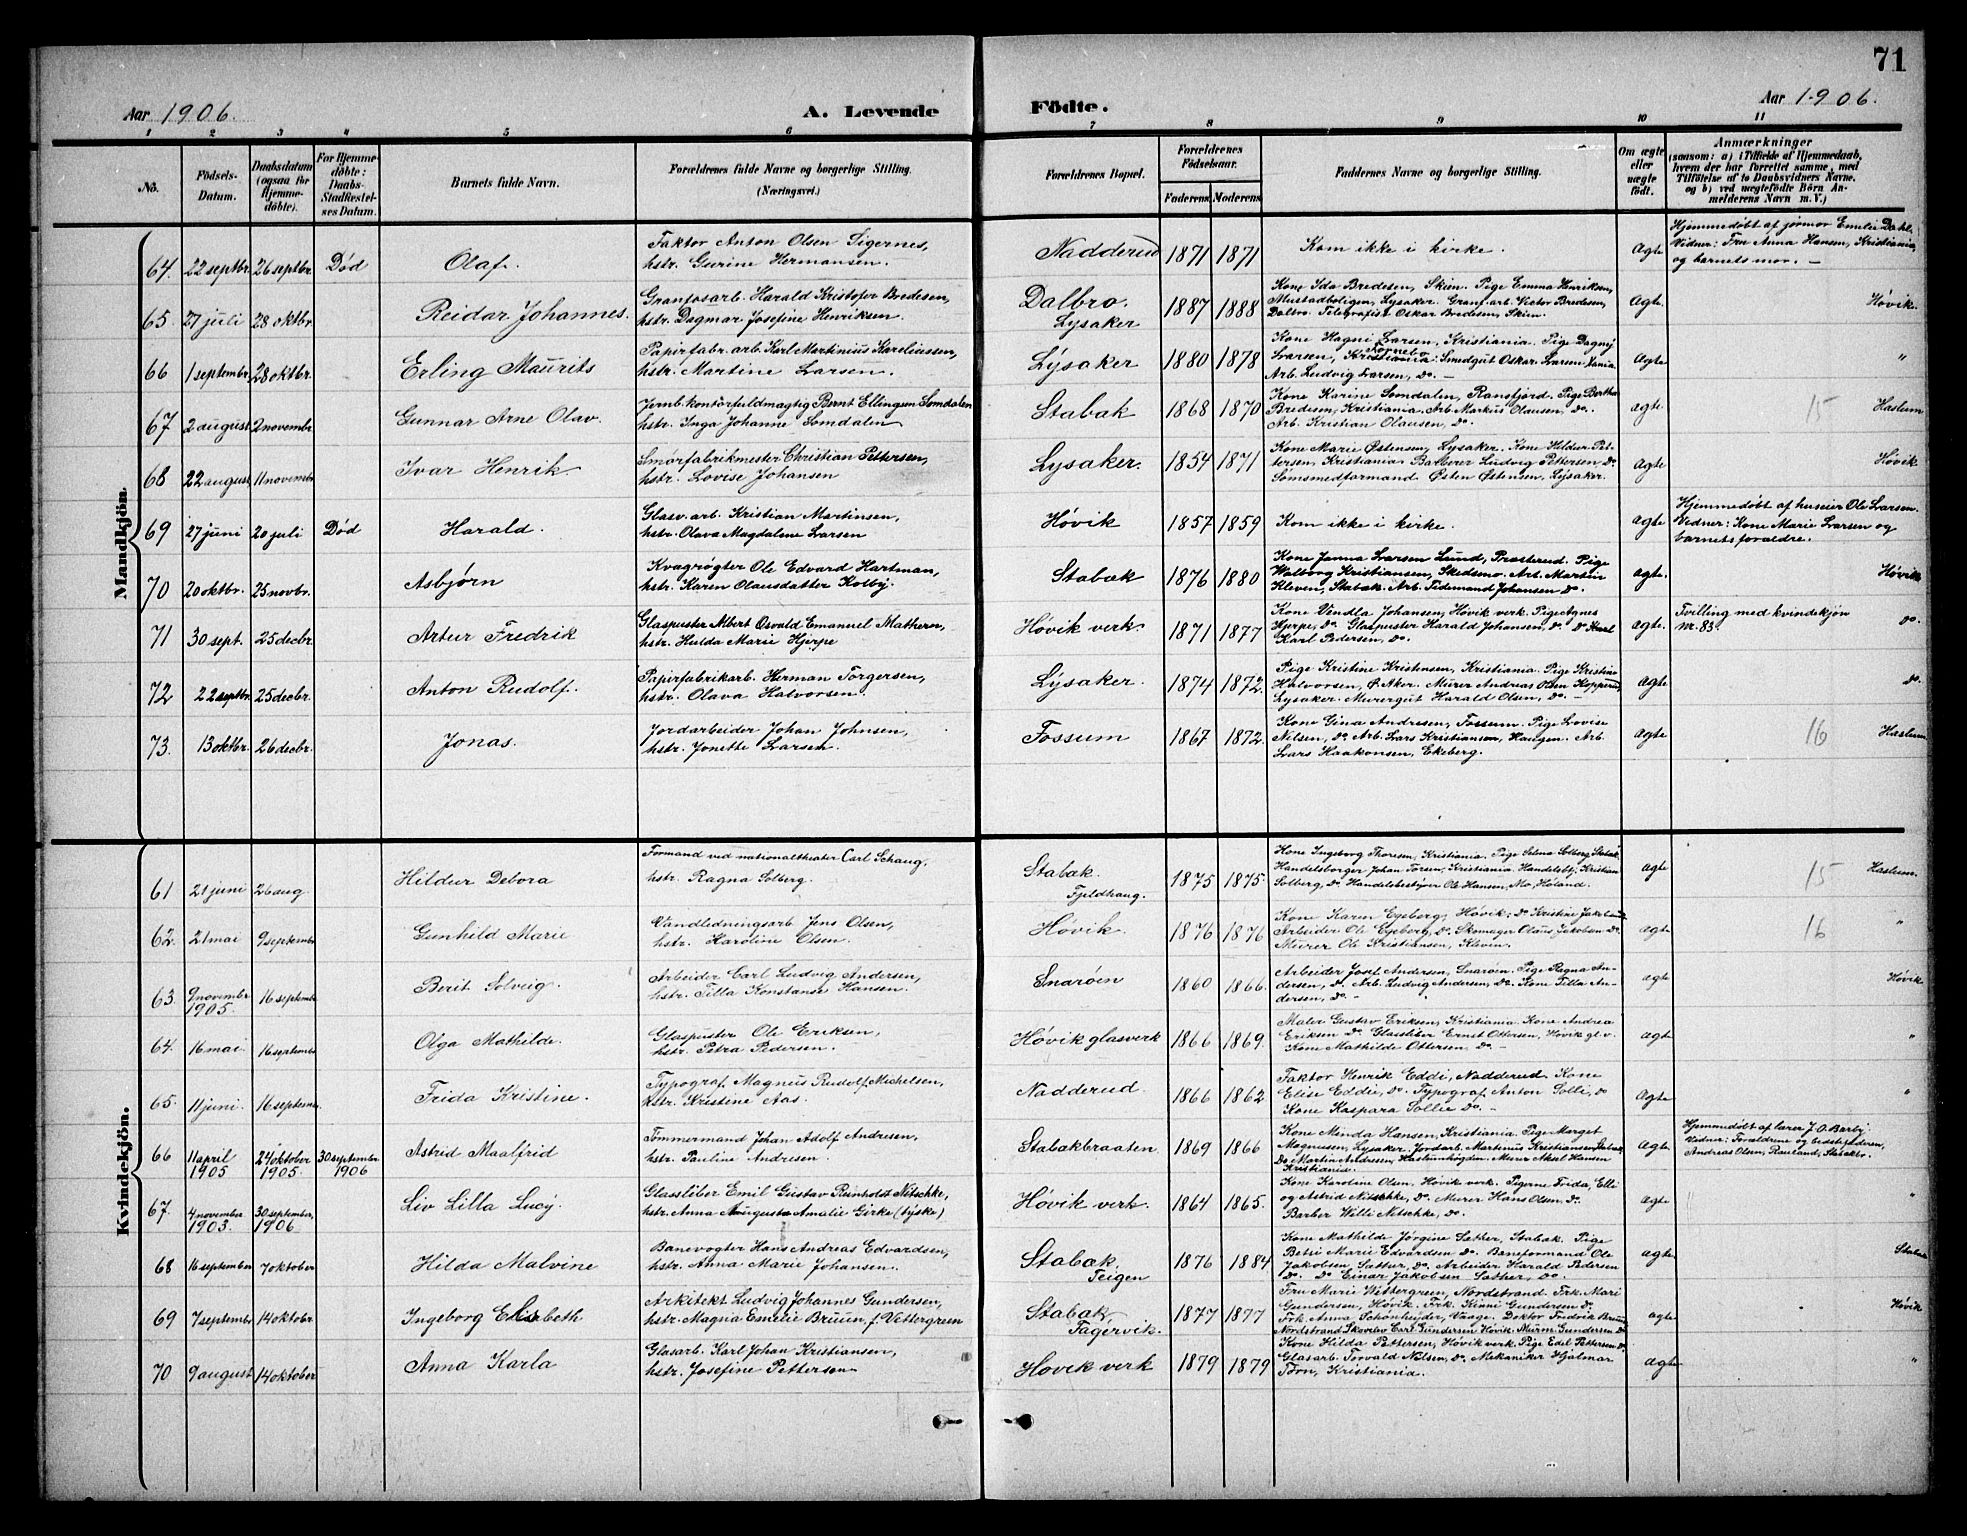 71
Aar 1906.
A. Levende
Födte.
Aar 1906.
1 2 3 4 5 6 7 8 9 10 11
No.
Födsels-
Datum.
Daabsdatum
(ogsaa for
Hjemme-
döbte).
For Hjemme-
döbte:
Daabs-
Stadfæstel-
ses Datum.
Barnets fulde Navn.
Forældrenes fulde Navne og borgerlige Stilling.
(Næringsvei.)
Forældrenes Bopæl.
Forældrenes
Födselsaar.
Faderens Moderens
Faddernes Navne og borgerlige Stilling.
Om ægte
eller
uægte
födt.
Anmærkninger
(saasom: a) i Tilfælde af Hjemmedaab,
hvem der har forrettet samme, med
Tilföielse af to Daabsvidners Navne,
og b) ved uægtefödte Börn An-
melderens Navn m. V.)
Mandkjön.
64. 22 septbr. 26 septbr. Død Olaf.
Faktor Anton Olsen Sigernes,
hstr. Gurine Hermansen.
Nadderud 1871 1871 Kom ikke i kirke. Ægte
Hjemmedøbt af jormor Emelie Dahl.
Vidner: Fru Anna Hansen, Kristiania,
og barnets mor. —
65. 27 juli 28 oktbr. Reidar Johannes.
Granfosarb. Harald Kristofer Bredesen,
hstr. Dagmar Josefine Henriksen.
Dalbro.
Lysaker
1887 1888
Kone Ida Bredesen, Skien. Pige Emma Henriksen,
Mustadboligen, Lysaker. Granf. arb. Victor Bredesen,
Dalbro. Telegrafist Oskar Bredesen, Skien.
Ægte. Høvik.
66 1 septembr. 28 oktbr. Erling Maurits
Papirfabr. arb. Karl Martinius Kareliussen,
hstr. Martine Larsen.
Lysaker 1880 1878
Kone Hagni Larsen, Kristiania. Pige Dagny
Larsen, Kristiania. Smedgut Oskar Larsen,
Arb. Ludvig Larsen, do. —
Ægte "
67 2 august 2 novembr. Gunnar Arne Olav.
Jernb. kontorfuldmægtig Bernt Ellingsen Somdalen
hstr. Inga Johanne Somdalen
Stabæk 1868 1870
Kone Karine Somdalen, Ransfjord. Pige Bertha
Bredesen, Kristiania. Arb. Markus Olausen, do.
Arb. Kristian Olausen, do.
ægte. 15 Haslum
68 22 august, 11 novembr. Ivar Henrik
Smørfabrikmester Christian Pettersen,
hstr. Lovise Johansen
Lysaker. 1854 1871
Kone Marie Østensen, Lysaker. Kone Hildur Pet-
tersen, Kristiania. Balberer Ludvig Pettersen do.
Sømsmedformand Østen Østensen, Lysaker.
ægte Høvik
69 27 juni 20 juli Død Harald.
Glasv. arb. Kristian Martinsen,
hstr. Olava Magdalene Larsen
Høvik 1857 1859 Kom ikke i kirke. ægte
Hjemmedøbt af huseier Ole Larsen.
Vidner: Kone Marie Larsen og
barnets forældre.
70 20 oktbr. 25 novbr. Asbjørn
Kvægrøgter Ole Edvard Hartman,
hstr. Karen Olausdatter Kolby.
Stabæk 1876 1880
Kone Janna Larsen Lund, Præsterud. Pige
Walborg Kristiansen, Skedsmo. Arb. Martin
Kleven, Stabæk. Arb. Tidemand Johansen do.
ægte. Høvik
71 30 sept. 25 decbr. Artur Fredrik
Glaspuster Albert Osvald Emanuel Mathern,
hstr. Hulda Marie Hjerpe
Høvik verk. 1871 1877
Kone Vendla Johansen, Høvik verk. Pige Agnes
Hjerpe, do. Glaspuster Harald Johansen, do. do Karl
Karl Pedersen, do.
ægte.
Tvilling med kvindekjøn
nr. 83. do.
72 22 septbr. 25 decbr. Anton Rudolf.
Papirfabrikarb. Herman Torgersen,
hstr. Olava Halvorsen.
Lysaker. 1874 1872.
Pige Kristine Kristensen, Kristiania. Pige Kristine
Halvorsen, Ø. Aker. Murer Andreas Olsen
Lysaker. Murergut Harald Olsen, do. —
ægte do.
73. 13 oktbr. 26 decbr. Jonas.
Jordarbeider Johan Johnsen,
hstr. Jonette Larsen.
Fossum 1867 1872.
Kone Gina Andresen, Fossum. Pige Lovise
Nilsen, do. Arb. Lars Kristiansen, Haugen. Arb.
Lars Haakonsen, Ekeberg.
ægte 16 Haslum
Kvindekjön.
61 21 juni 26 aug Hildur Debora
Formand ved nationaltheater Carl Schaug,
hstr. Ragna Solberg.
Stabæk.
Fjeldhaug.
1875 1875
Kone Ingeborg Thoresen, Kristiania. Pige Selma Solberg, Stabæk.
Handelsborger Johan Toresen, Kristiania. Handelsbt. Kristian
Solberg, do. Handelsbestyrer Ole Hansen, Mo, Høland.
ægte 15 Haslum.
62. 21 mai 9 septembr. Gunhild Marie
Vandledningsarb. Jens Olsen,
hstr. Karoline Olsen.
Høvik. 1876 1876
Kone Karen Egeberg, Høvik. do Kristine Jakobsen,
Arbeider Ole Egeberg, do. Skomager Olaus Jakobsen do.
Murer Ole Kristiansen, Kleven.
ægte 16 "
63. 9 novembr.
1905. 16 septembr Berit Solveig.
Arbeider Carl Ludvig Andersen,
hstr. Tilla Konstanse Hansen.
Snarøen 1860 1866.
Arbeider Josef Andersen, Snarøen. Pige Ragna An-
dersen, do. Arb. Ludvig Andersen, do. Kone Tilla An-
dersen, do. —
ægte Høvik
64. 16 mai. 16 septembr. Olga Mathilde.
Glaspuster Ole Eriksen,
hstr. Petra Pedersen.
Høvik glasverk 1866 1869.
Maler Gustav Eriksen, Kristiania. Kone Andrea
Eriksen do. Glassliber Ernst Ottersen, Høvik gl.v.
Kone Mathilde Ottersen do. —
ægte "
65. 11 juni. 16 septembr. Frida Kristine.
Typograf Magnus Rudolf Michelsen,
hstr. Kristine Aas.
Nadderud 1866 1862
Faktor Henrik Eddi, Nadderud. Kone
Elise Eddie, do. Typograf Anton Solli, do
Kone Kaspara Sollie do. —
Ægte "
66 11 april
1905 24 oktober
1905. 30 septembr.
1906 Astrid Maalfrid
Tømmermand Johan Adolf Andresen,
hstr. Pauline Andresen.
Stabækbraaten 1869 1866
Kone Minda Hansen, Kristiania. Pige Margot
Magnussen, Lysaker. Jordarb. Martinus Kristiansen, Stabæk
do. Martin Andresen, Haslumhøgden. Murer Aksel Hansen
Kristiania.
Ægte
Hjemmedøbt af lærer J. O. Barby.
Vidner: Forældrene og bedstefaderen,
Andreas Olsen, Rauland, Stabækbr.
67. 4 november
1903. 30 september,
1906 Liv Lilla Lucy.
Glassliber Emil Gustav Reinholdt Nitschke,
hstr. Anna Augusta Amalie Girke (tyske)
Høvik verk. 1864 1865.
Kone Karoline Olsen, Høvik verk. Pigerne Frida, Elli
og Astrid Nitschke, do. Murer Hans Olsen, do.
Barber Willi Nitschke, do.
ægte "
68 16 september 7 oktober Hilda Malvine
Banevogter Hans Andreas Edvardsen,
hstr. Anna Marie Johansen.
Stabæk.
Teigen
1876 1884
Kone Mathilde Jørgine Sæther, Stabæk. Pige
Betsi Marie Edvardsen do. Baneformand Ole
Jakobsen Sæther, do. Arbeider Harald Pedersen
do. do Einar Jakobsen Sæther, do.
ægte Stabæk
69 7 septembr 14 oktobr. Ingeborg Elisabeth
Arkitekt Ludvig Johannes Gundersen,
hstr. Magna Emelie Bruun, f. Vettergreen
Stabæk
Fagervik.
1877 1877
Fru Marie Wettergreen, Nordstrand. Frk. Mari
Gundersen, Høvik. Frk. Kinni Gundersen do.
Frk. Anna Schønheyder, Vaage. Doktor Fredrik Bruun
Nordstrand. Skovelev Carl Gundersen Høvik. Gundersen do
ægte Høvik
70 9 august 14 oktober Anna Karla
Glasarb. Karl Johan Kristiansen,
hstr. Josefine Petterson
Høvik verk 1879 1879
Kone Hilda Pettersen, Høvik verk. Pige Edel Pettersen do.
Glasarb. Torvald Nilsen, do. Mekaniker Hjalmar
Törn, Kristiania.
ægte "